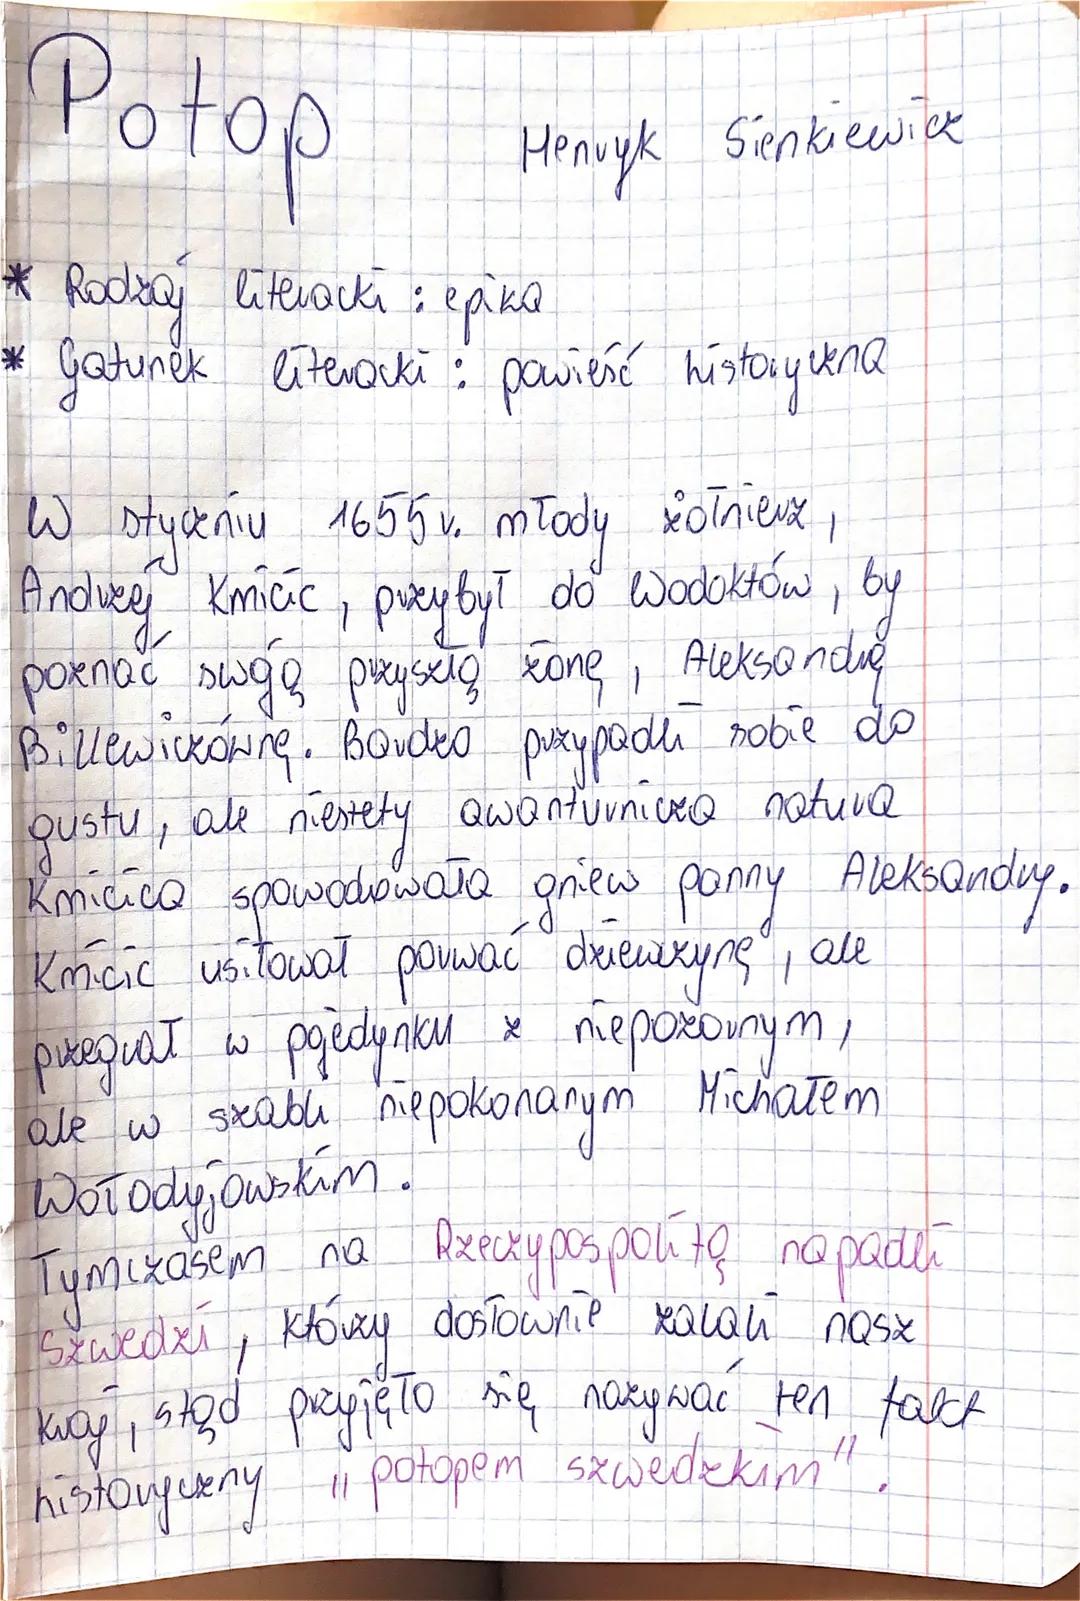 Potop
Henryk Sienkiewicz
* Rodzaj literacki : epika
* Gatunek literacki : powieść historyczna
W styczniu 1655 r. młody żołnierz,
Andrzej Kmicic, przybył do Wodoktów, by
poznać swoją przyszłą żonę, Aleksandrę
Billewiczównę. Bardzo przypadli sobie do
gustu, ale niestety awanturnicza natura
Kmicica spowodowała gniew panny Aleksandry.
Kmicic usiłował porwać dziewczynę, ale
przegrał w pojedynku z niepozornym,
ale w szabli niepokonanym Michałem
Wołodyjowskim.
Tymczasem na Rzeczypospolitą napadli
Szwedzi, którzy dosłownie zalali nasz
kraj, stąd przyjęło się nazywać ten fakt
historyczny „potopem szwedzkim".